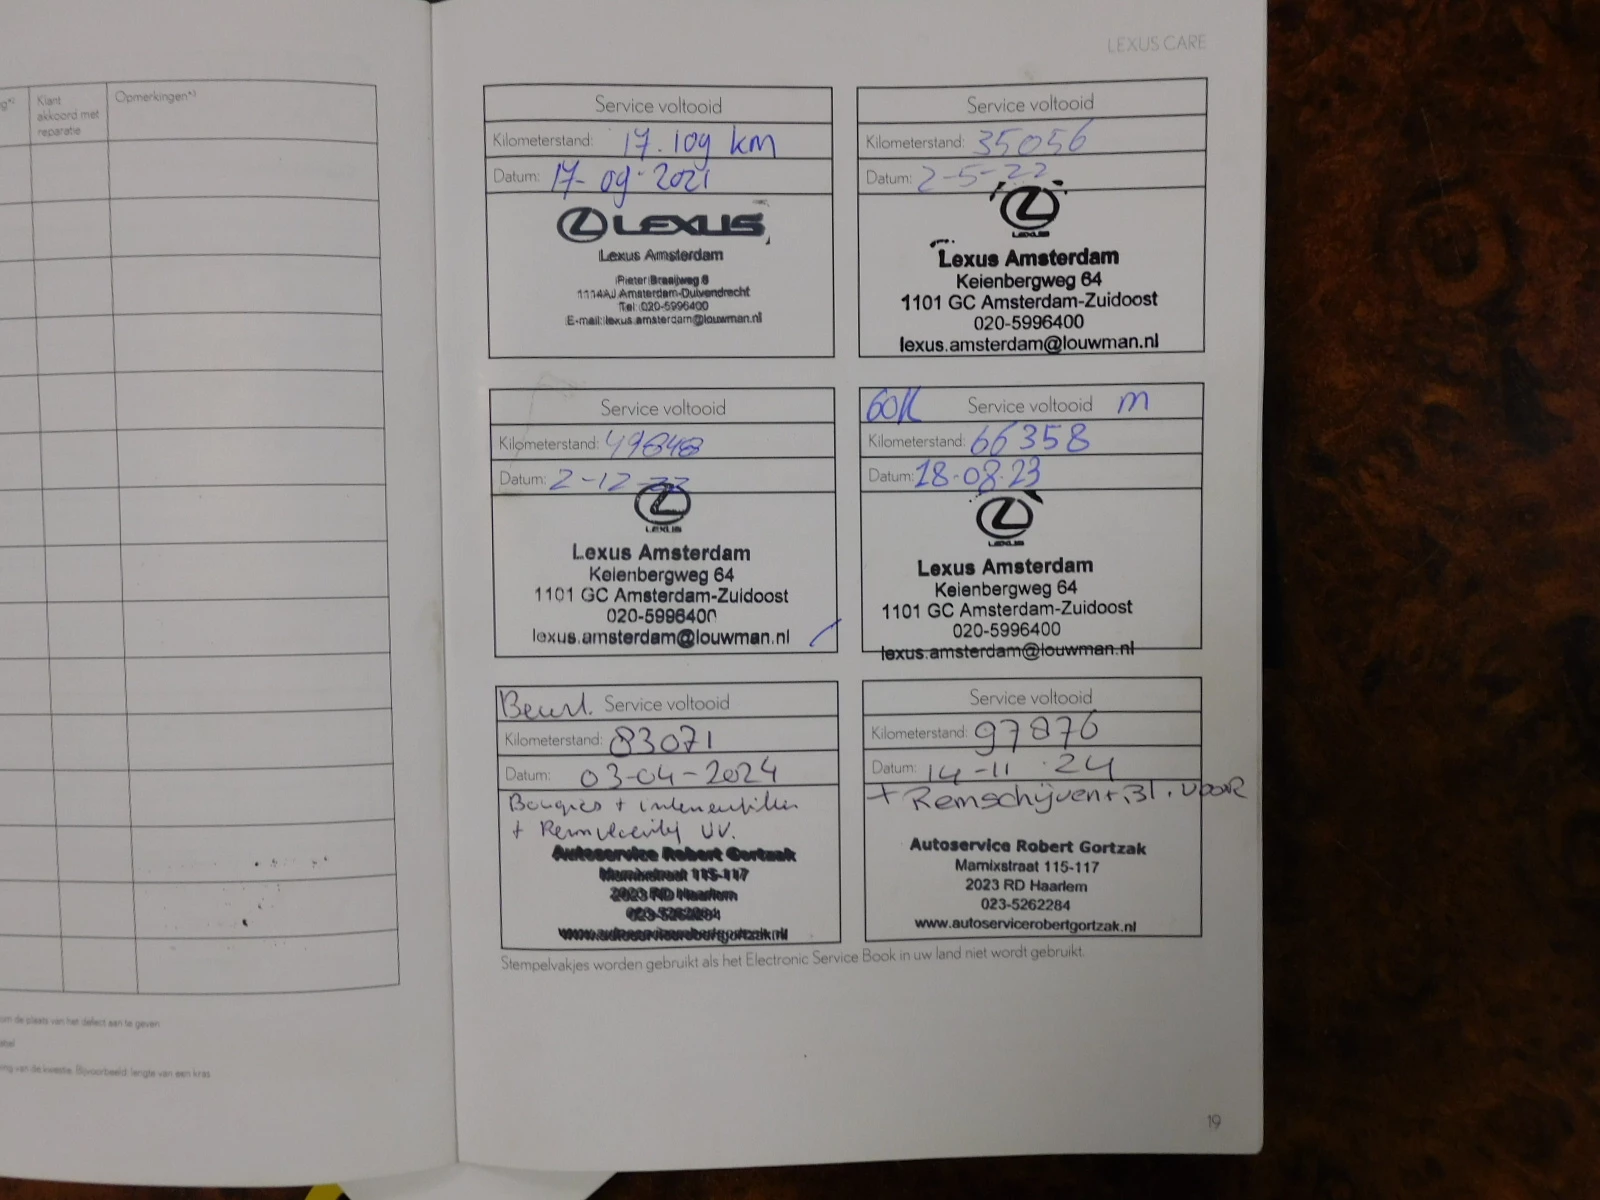 g*)
Klant
akkoord met
reparatie
Opmerkingen*)
om de plaats van het defect aan te geven
ing van de kwestie. Bijvoorbeeld: lengte van een kras
LEXUS CARE
Service voltooid
Kilometerstand: 17.109 km
Datum: 17-09-2021
LEXUS
Lexus Amsterdam
Pieter Braaijweg 6
1114AJ Amsterdam-Duivendrecht
Tel: 020-5996400
E-mail: lexus.amsterdam@louwman.nl
Service voltooid
Kilometerstand: 35056
Datum: 2-5-22
LEXUS
Lexus Amsterdam
Keienbergweg 64
1101 GC Amsterdam-Zuidoost
020-5996400
lexus.amsterdam@louwman.nl
Service voltooid
Kilometerstand: 49848
Datum: 2-12-22
LEXUS
Lexus Amsterdam
Keienbergweg 64
1101 GC Amsterdam-Zuidoost
020-5996400
lexus.amsterdam@louwman.nl
60K Service voltooid m
Kilometerstand: 66358
Datum: 18-08-23
LEXUS
Lexus Amsterdam
Keienbergweg 64
1101 GC Amsterdam-Zuidoost
020-5996400
lexus.amsterdam@louwman.nl
Beurt. Service voltooid
Kilometerstand: 83071
Datum: 03-04-2024
Bougies + interieurfilter
+ Remvloeistof VV.
Autoservice Robert Gortzak
Marnixstraat 115-117
2023 RD Haarlem
023-5262284
www.autoservicerobertgortzak.nl
Service voltooid
Kilometerstand: 97876
Datum: 14-11-24
+ Remschijven + Bl. voor
Autoservice Robert Gortzak
Marnixstraat 115-117
2023 RD Haarlem
023-5262284
www.autoservicerobertgortzak.nl
Stempelvakjes worden gebruikt als het Electronic Service Book in uw land niet wordt gebruikt.
19